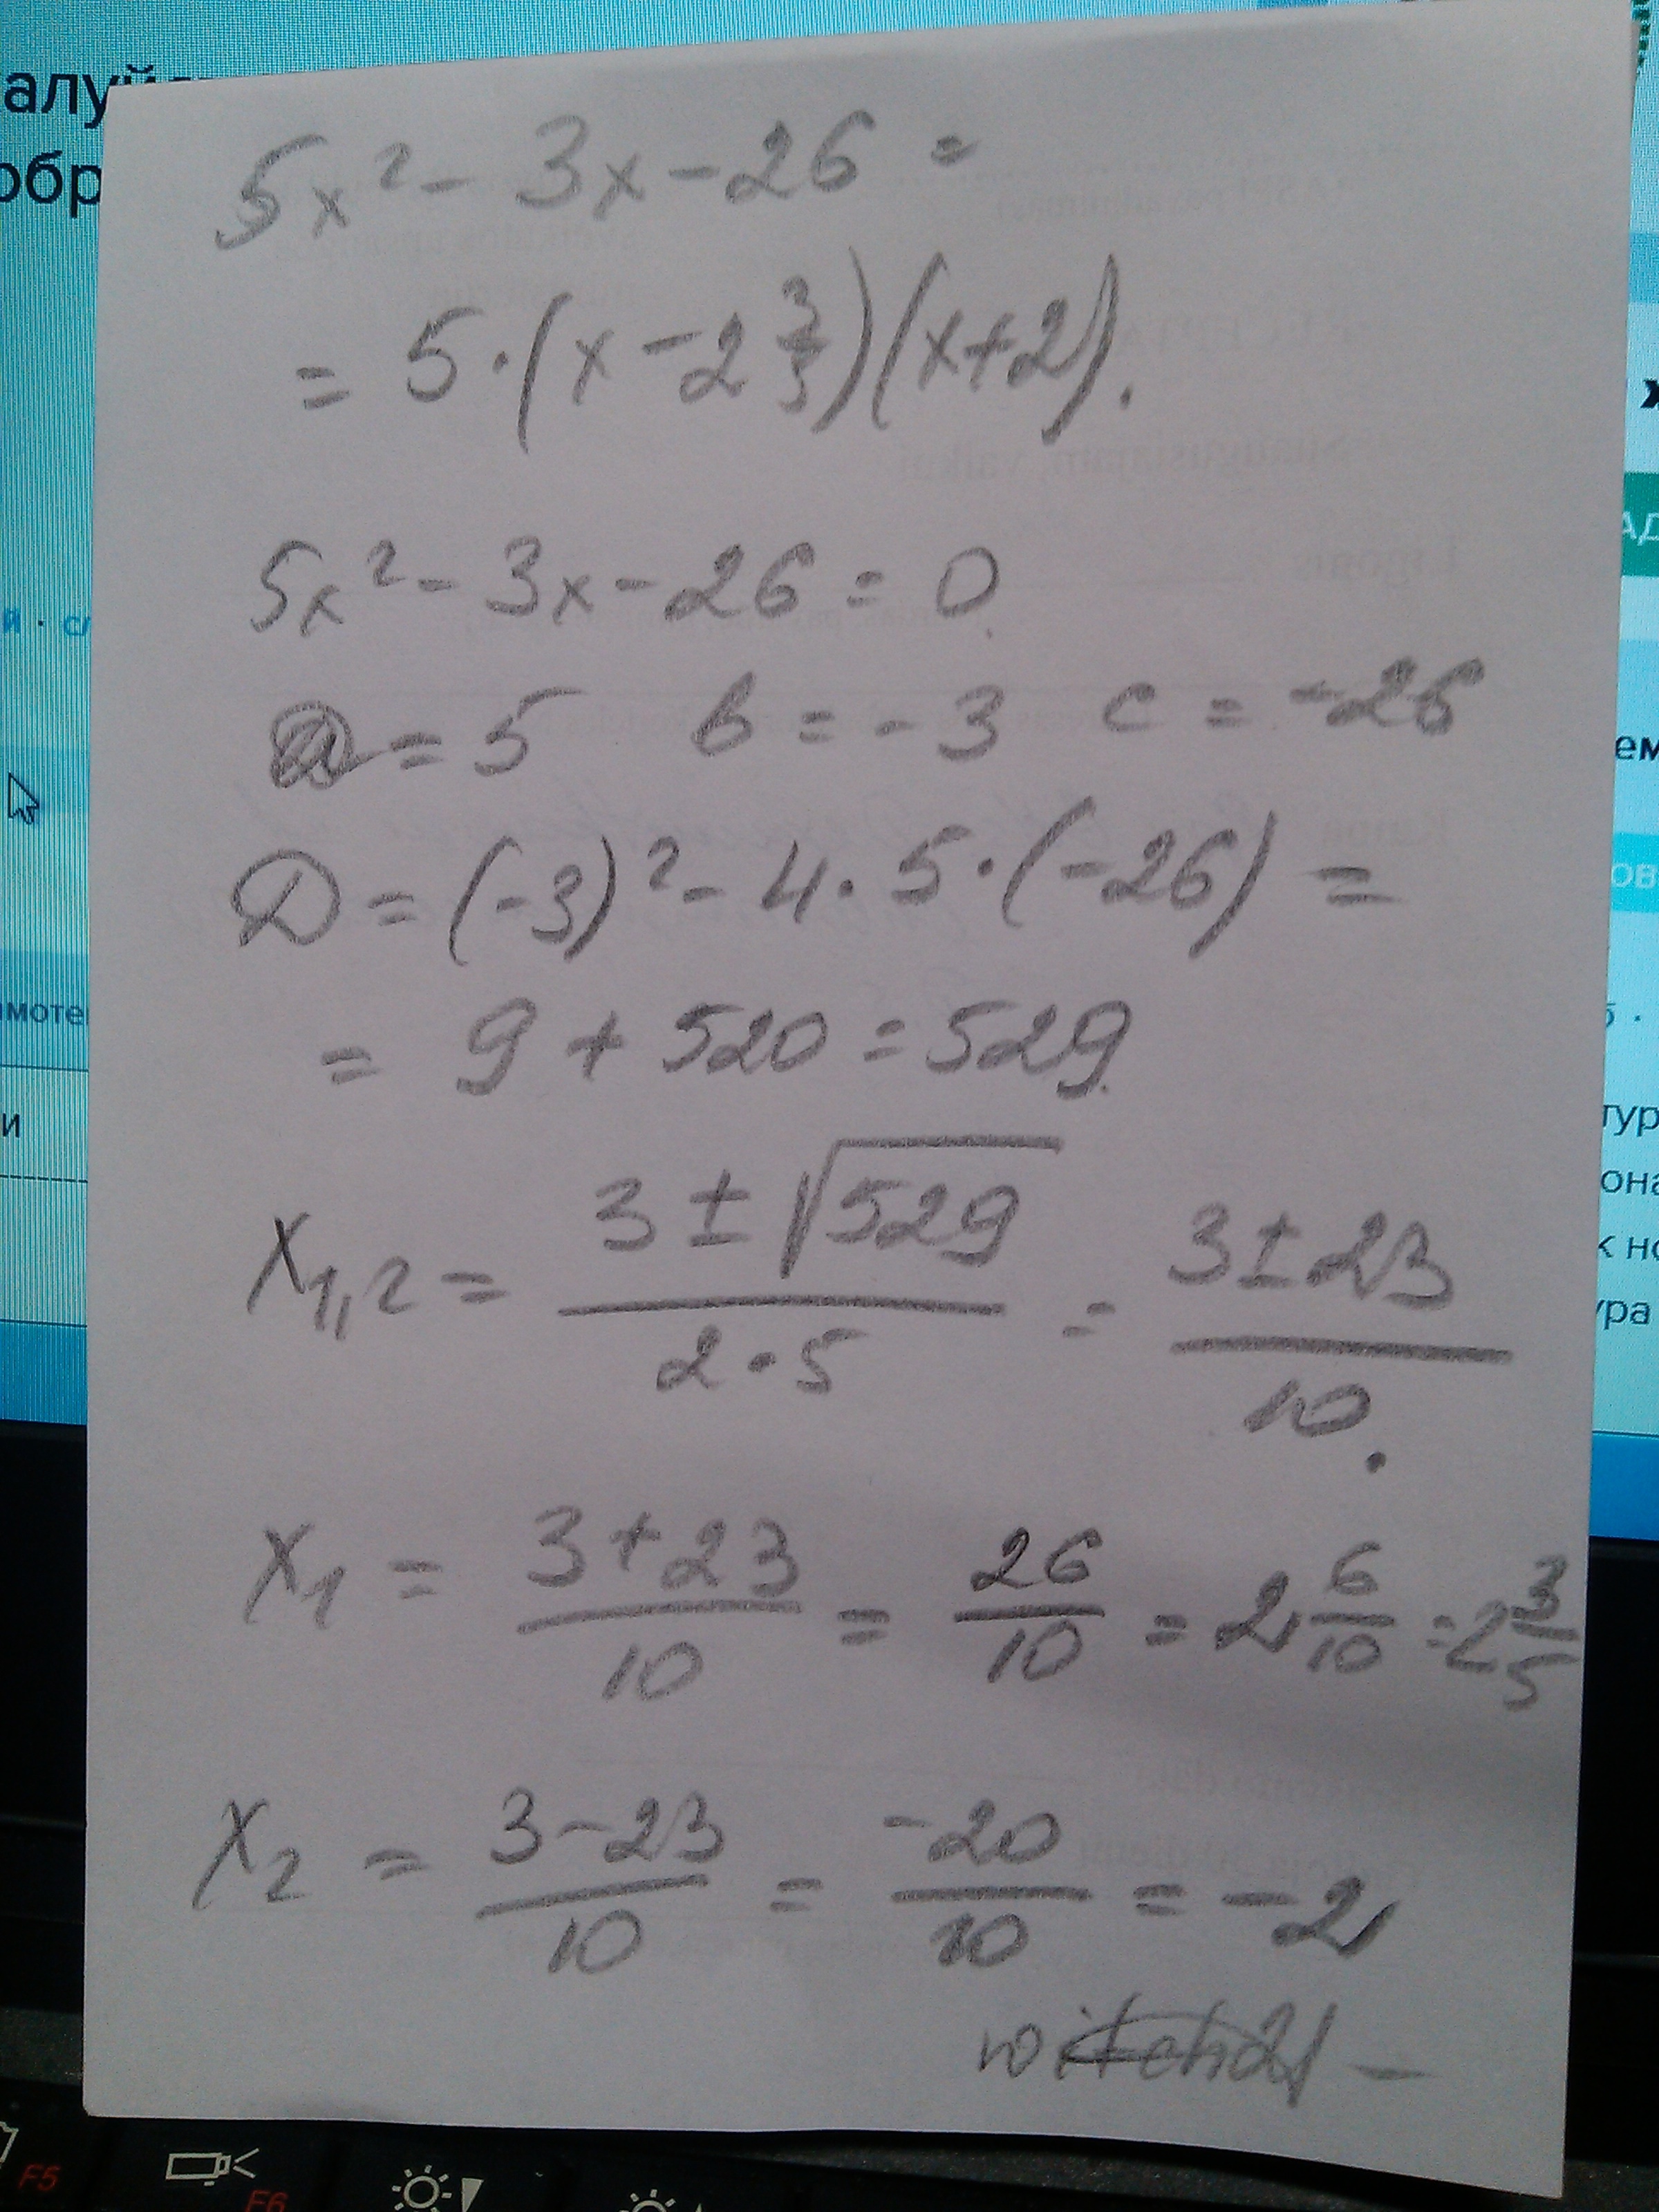 алуй
обр
5x² - 3x - 26 =
= 5·(x - 2 3/5)(x + 2).
5x² - 3x - 26 = 0
a = 5 b = -3 c = -26
D = (-3)² - 4·5·(-26) =
= 9 + 520 = 529.
x₁,₂ = (3 ± √529)/(2·5) = (3 ± 23)/10.
x₁ = (3 + 23)/10 = 26/10 = 2 6/10 = 2 3/5
x₂ = (3 - 23)/10 = -20/10 = -2
witch21 -
мотe
и
АД
ем
ов
тур
она
к но
ура
F5
F6